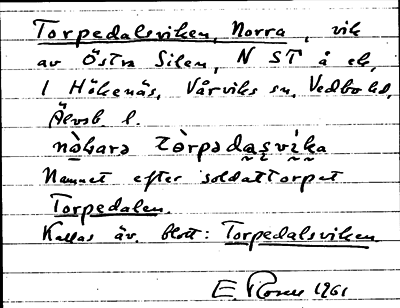 Torpedalsviken, Norra, vik
av Östra Silen, N ST å ek,
I Hökenäs, Vårviks sn, Vedbo hd,
Älvsb. l.
nò̱karə tò̀rpədas̭vì̱ka
Namnet efter soldattorpet
Torpedalen.
Kallas äv. blott: Torpedalsviken.
E. Rosen 1961